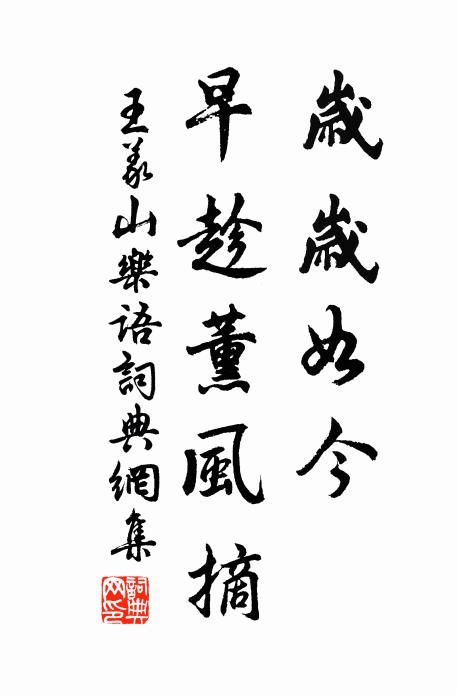 歲歲如今
早趁薰風摘
王義山樂語詞典網集
詞典網印